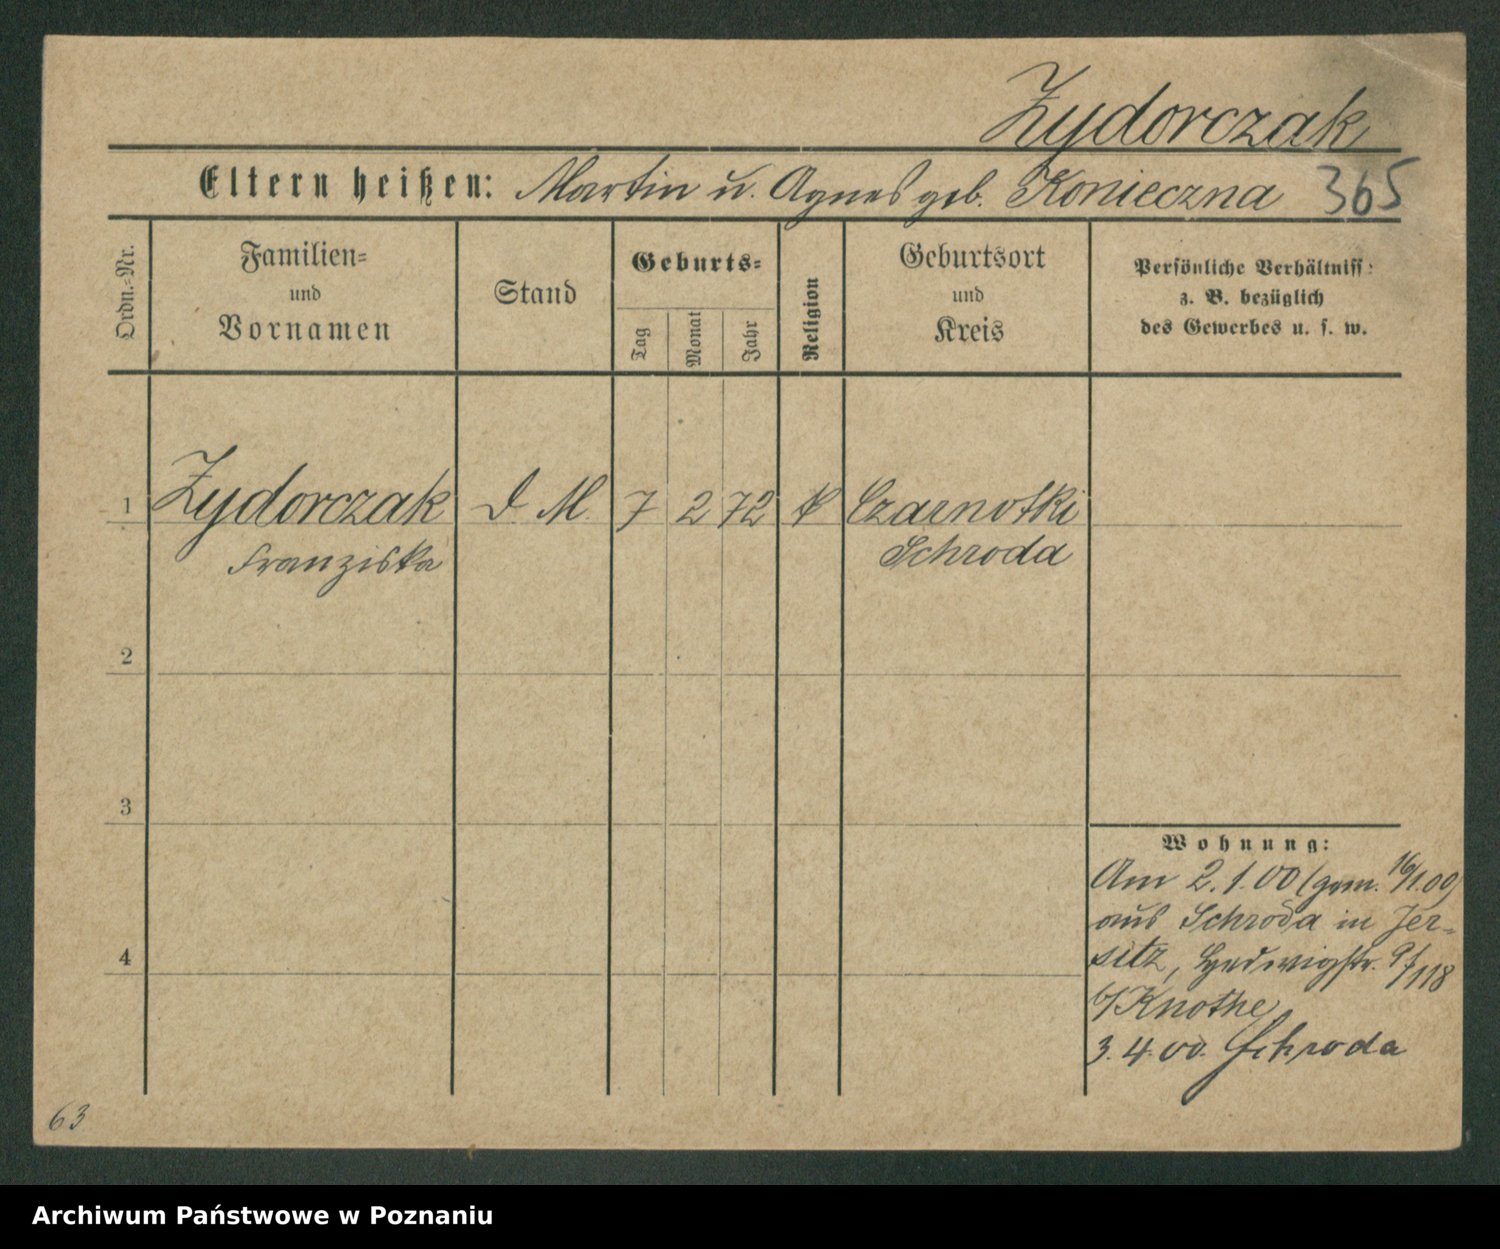 Zydorczak
Eltern heißen: Martin u. Agnes geb. Konieczna 365
Ordn.-Nr.
Familien-
und
Vornamen
Stand
Geburts-
Tag
Monat
Jahr
Religion
Geburtsort
und
Kreis
Persönliche Verhältniss:
z. B. bezüglich
des Gewerbes u. s. w.
1 Zydorczak D. M. 7 2 72 k Czarnotki
Franziska Schroda
2
3
4
Wohnung:
Am 2.1.00 (gem. 16/1.00)
aus Schroda in Jer-
sitz, Hedwigstr.
b/Knothe
3.4.00. Schroda
63
Archiwum Państwowe w Poznaniu